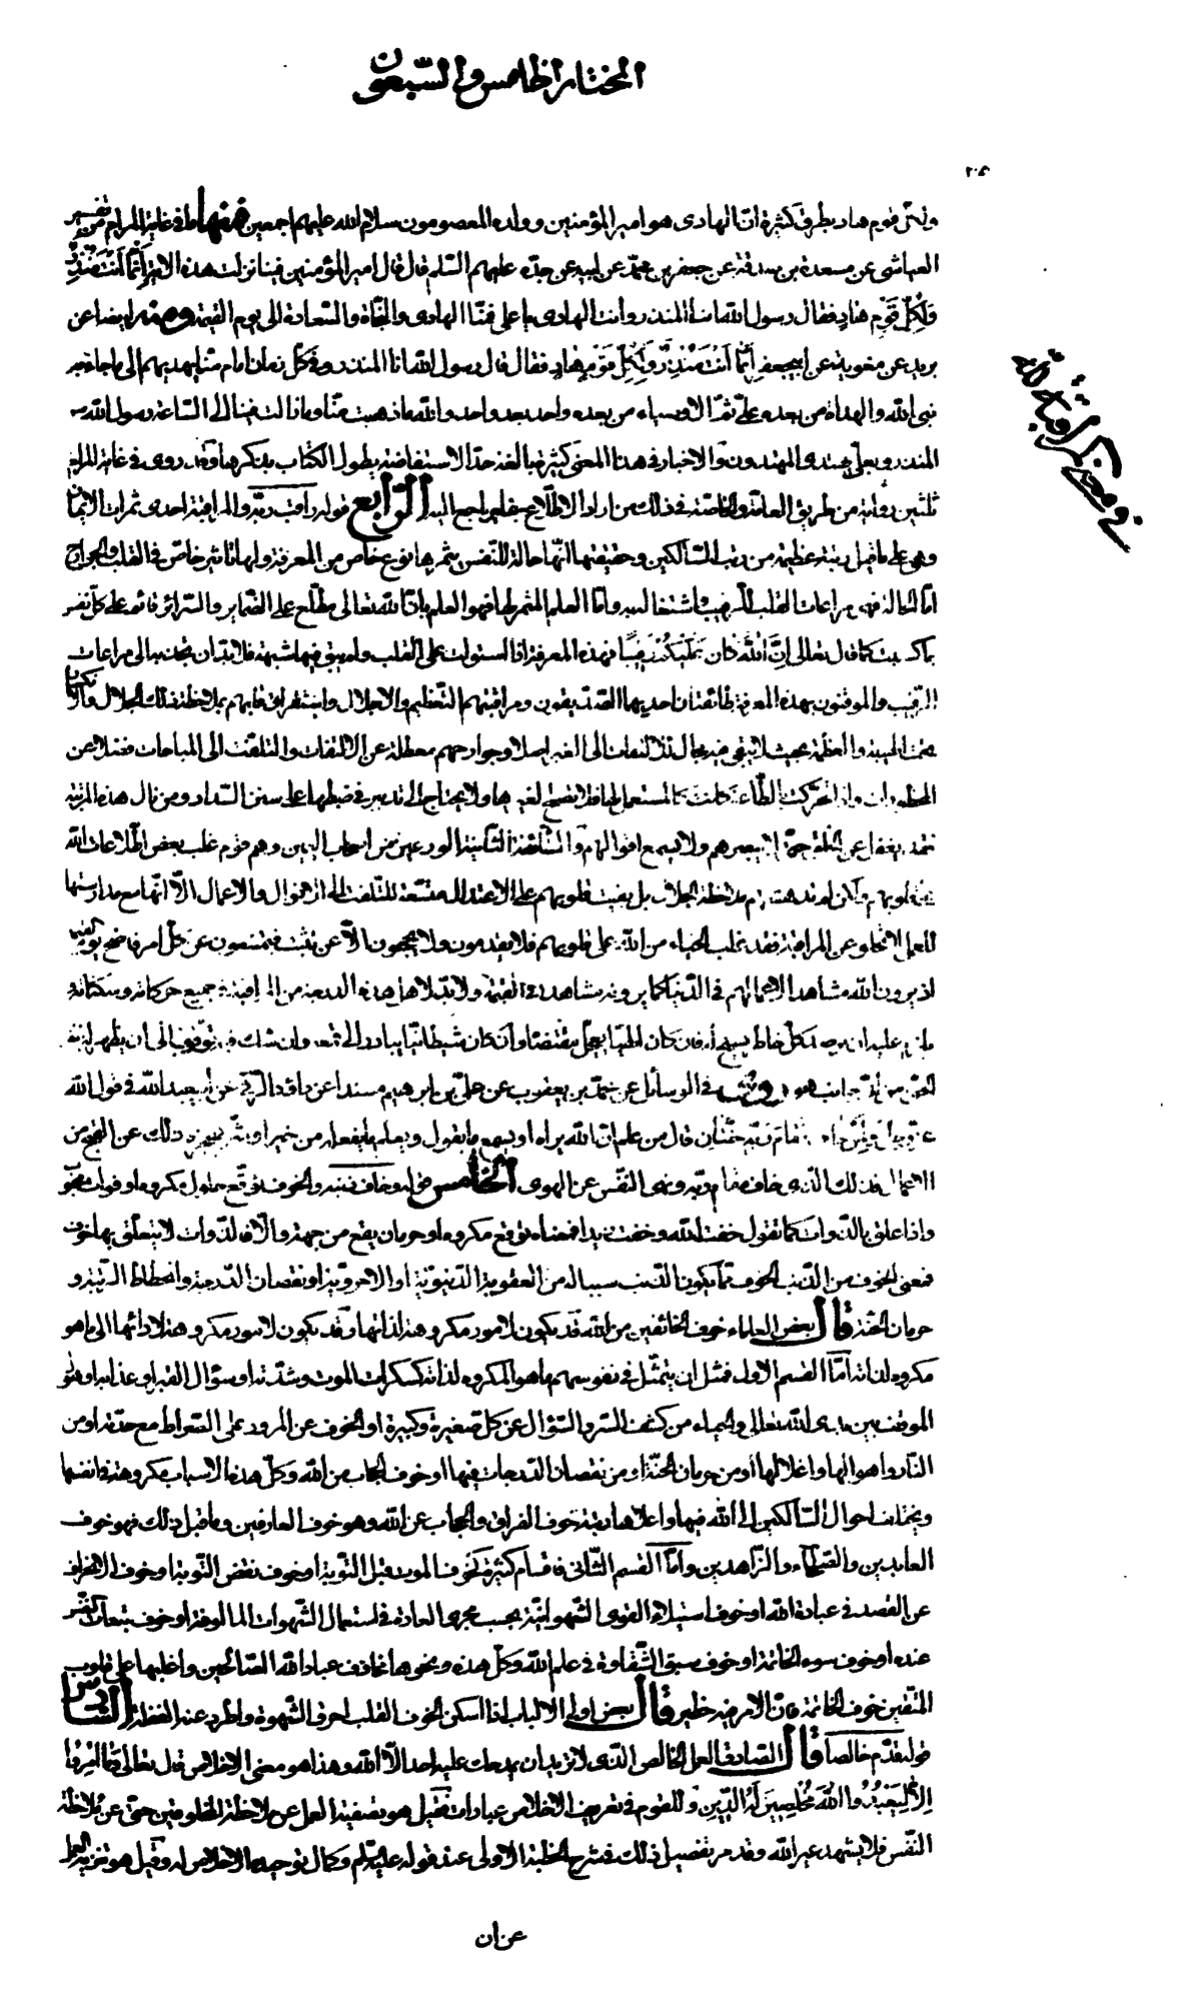 المختار الخامس والسبعون
٢٠٥
ولكلّ قوم هاد بطرق كثيرة انّ الهادى هو امير المؤمنين وولده المعصومون سلام الله عليهم اجمعين فمنها ما فى غاية المرام من تفسير
العياشى عن مسعدة بن صدقة عن جعفر بن محمّد عن ابيه عن جدّه عليهم السّلم قال قال امير المؤمنين فينا نزلت هذه الاية إِنَّمَا أَنْتَ مُنْذِرٌ
وَلِكُلِّ قَوْمٍ هَادٍ فقال رسول الله انا المنذر وانت الهادى يا على فمنّا الهادى والنّجاة والسّعادة الى يوم القيمة ومنه ايضا عن
بريد عن معوية عن ابيجعفر إِنَّمَا أَنْتَ مُنْذِرٌ وَلِكُلِّ قَوْمٍ هَادٍ فقال قال رسول الله انا المنذر وفى كلّ زمان امام منّا يهديهم الى ما جاء به
نبى الله والهداة من بعده علىّ ثمّ الاوصياء من بعده واحد بعد واحد والله ما ذهبت منّا وما زالت فينا الى السّاعة رسول الله
المنذر وبعلىّ يهتدى المهتدون والاخبار فى هذا المعنى كثيرة بالغة حدّ الاستفاضة يطول الكتاب بذكرها وقد روى فى غاية المرام
ثلثين رواية من طريق العامّة والخاصّة فى ذلك من اراد الاطّلاع عليها فليراجع اليه الرّابع قوله راقب ربّه والمراقبة احدى ثمرات الايمان
وهى على ما قيل رتبة عظيمة من رتب السّالكين وحقيقتها انّها حالة للنّفس يثمرها نوع خاصّ من المعرفة ولها تاثير خاصّ فى القلب والجوارح
امّا الحالة فهى مراعات القلب للرّقيب واشتغاله به وامّا العلم المثمر لها فهو العلم بانّ الله تعالى مطّلع على الضّماير والسّرائر قائم على كلّ نفس
بما كسبت كما قال تعالى إِنَّ اللهَ كَانَ عَلَيْكُمْ رَقِيبًا فهذه المعرفة اذا استولت على القلب ولم يبق فيها شبهة فلا بدّ ان تجذبه الى مراعات
الرّقيب والموقنون بهذه المعرفة طائفتان احديهما الصّدّيقون ومراقبتهم التّعظيم والاجلال واستغراق قلبهم بملاحظة ذلك الجلال وانكسارها
تحت الهيبة والعظمة بحيث لا يبقى فيه مجال للالتفات الى الغير اصلا وجوارحهم معطلة عن الالتفات والتلفّت الى المباحات فضلا عن
المحظورات واذا تحرّكت بالطّاعة كانت كالمستعمل لها فلا تصلح لغيرها ولا يحتاج الى تدبير فى ضبطها على سنن السّداد ومن نال هذه المرتبة
فقد يغفل عن الخلق حتّى لا يبصرهم ولا يسمع اقوالهم والطّائفة الثّانية الورعون من اصحاب اليمين وهم قوم غلب بعض اطّلاعات الله
على قلوبهم ولكن لم تدهشهم ملاحظة الجلال بل بقيت قلوبهم على الاعتدال متّسعة للتّلفت الى الاحوال والاعمال الاّ انّها مع مدارستها
للعمل لا تخلو عن المراقبة فقد غلب الحياء من الله على قلوبهم فلا يقدمون ولا يحجمون الاّ عن تثبّت فيمتنعون عن كلّ امر فاضح يوم القيمة
اذ يرون الله مشاهدا لاعمالهم فى الدّنيا كما يرونه مشاهدا فى القيمة ولا بدّ لاهل هذه الدرجة من المراقبة فى جميع حركاته وسكناته
لكلّ خاطر يسنح له فان كان الهيّا يعجّل مقتضاه وان كان شيطانيّا يبادر الى قمعه وان شكّ فيه توقّف الى ان يظهر له
فى الوسائل عن محمّد بن يعقوب عن علىّ بن ابرهيم مسندا عن داود الرّقّى عن أبيعبد الله فى قول الله
مَقَامَ رَبِّهِ جَنَّتَانِ قال من علم انّ الله يراه ويسمع ما يقول ويعلم ما يفعله من خير او شرّ فيحجزه ذلك عن القبيح من
الاعمال فذلك الّذى خاف مقام ربّه ونهى النّفس عن الهوى الخامس قوله وخاف ذنبه والخوف توقّع حلول مكروه او فوات محبوب
واذا علق بالذّوات كما تقول خفت الله وخفت زيدا فمعناه توقّع مكروه او حرمان يقع من جهته والاّ فالذّوات لا يتعلّق بها خوف
فمعنى الخوف من الذّنب الخوف ممّا يكون الذّنب سببا له من العقوبة الدّنيويّة او الاخرويّة او نقصان الدّرجة وانحطاط الرّتبة و
حرمان الجنّة قال بعض العلماء خوف الخائفين من الله قد يكون لامور مكروهة لذاتها وقد يكون لامور مكروهة لادائها الى ما هو
مكروه لذاته امّا القسم الاول فمثل ان يتمثّل فى نفوسهم ما هو المكروه لذاته كسكرات الموت وشدّته او سؤال القبر او عذابه او هول
الموقف بين يدى الله تعالى والحياء من كشف السّتر والسّؤال عن كلّ صغيرة وكبيرة او الخوف عن المرور على الصّراط مع حدّته او من
النّار واهوالها واغلالها او من حرمان الجنّة او من نقصان الدّرجات فيها او خوف الحجاب من الله وكلّ هذه الاسباب مكروهة فى انفسها
ويختلف احوال السّالكين الى الله فيها واعلاها رتبة خوف الفراق والحجاب عن الله وهو خوف العارفين وما قبل ذلك فهو خوف
العابدين والصّلحاء والزّاهدين وامّا القسم الثّانى فاقسام كثيرة كخوف الموت قبل التّوبة او خوف نقض التّوبة او خوف الانحراف
عن القصد فى عبادة الله او خوف استيلاء القوى الشّهوانيّة بحسب مجرى العادة فى استعمال الشّهوات المالوفة او خوف تبعات النّاس
عنده او خوف سوء الخاتمة او خوف سبق الشّقاوة فى علم الله وكلّ هذه ونحوها مخاوف عباد الله الصّالحين واغلبها على قلوب
المتّقين خوف الخاتمة فانّ الامر فيه خطير قال بعض اولى الالباب اذا اسكن الخوف القلب احرق الشّهوة واطرد عنه الغفلة السّادس
قوله قدّم خالصا قال الصّادق العمل الخالص الّذى لا تريد ان يمدحك عليه احد الاّ الله وهذا هو معنى الاخلاص قال تعالى وَمَا أُمِرُوا
إِلاَّ لِيَعْبُدُوا اللهَ مُخْلِصِينَ لَهُ الدِّينَ وللقوم فى تعريف الاخلاص عبارات فقيل هو تصفية العمل عن ملاحظة المخلوقين حتّى عن ملاحظة
النّفس فلا يشهد غير الله وقد مرّ تفصيل ذلك فى شرح الخطبة الاولى عند قوله عليه السّلم وكمال توحيده الاخلاص له وقيل هو تنزيه العمل
عن ان
فى معنى المراقبة لله